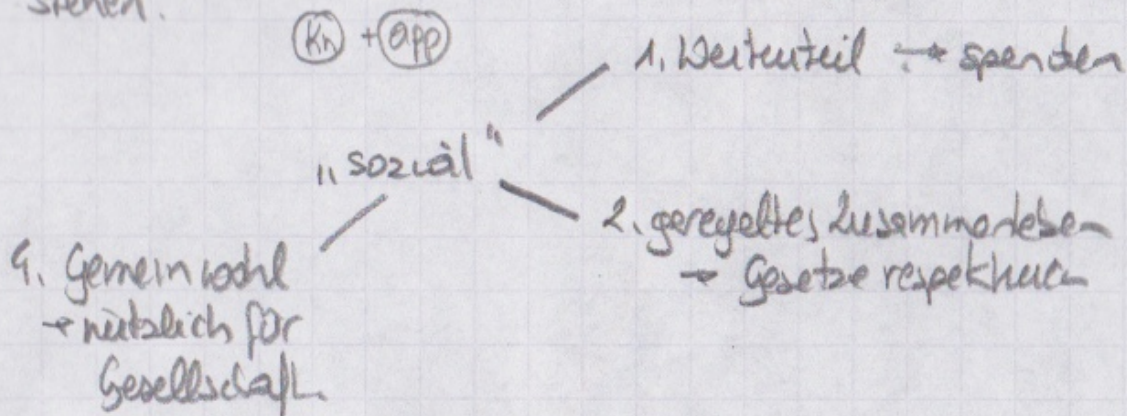 stehen.
Kn + app
1. Weitenteil → spenden
„sozial"
2. geregeltes Zusammenleben
→ Gesetze respektieren
4. Gemeinwohl
→ nützlich für
Gesellschaft.